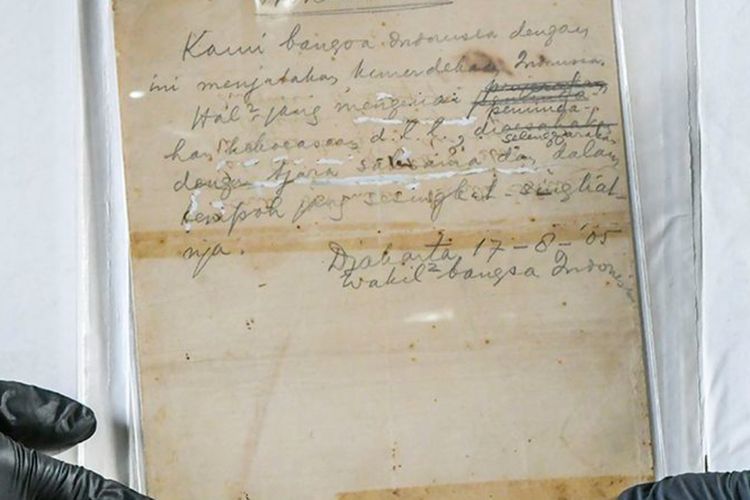 Kami bangsa Indonesia dengan
ini menjatakan kemerdekaan Indonesia.
Hal² jang mengenai peminda-
han kekoeasaan d.l.l., diselenggarakan
dengan tjara saksama dan dalam
tempoh jang sesingkat-singkat-
nja.
Djakarta, 17-8-'05
Wakil² bangsa Indonesia